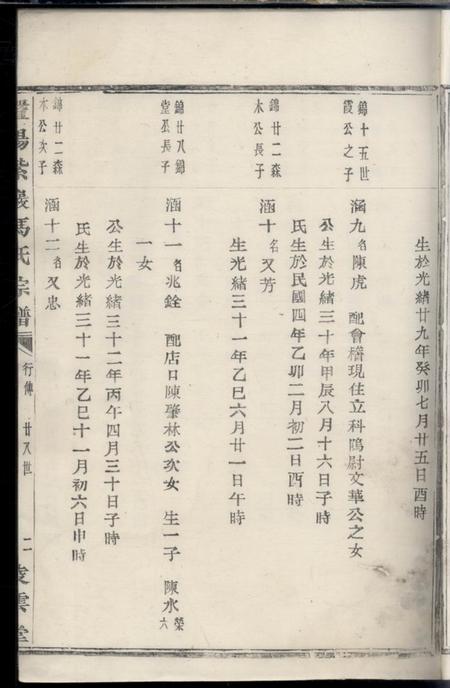 生於光緒廿九年癸卯七月廿五日酉時
錦十五世
霞公之子
涵九名陳虎 配會稽現住立科鴟尉文華公之女
公生於光緒三十年甲辰八月十六日子時
氏生於民國四年乙卯二月初二日酉時
錦廿二森
木公長子
涵十名又芳
生光緒三十一年乙巳六月廿一日午時
錦廿八錦
堂公長子
涵十一名兆銓 配店口陳肇林公次女 生一子 陳水榮六
一女
公生於光緒三十二年丙午四月三十日子時
氏生於光緒三十一年乙巳十一月初六日申時
錦廿二森
木公次子
涵十二名又忠
暨陽紫巖馮氏宗譜
行傳 廿八世
二
凌雲堂